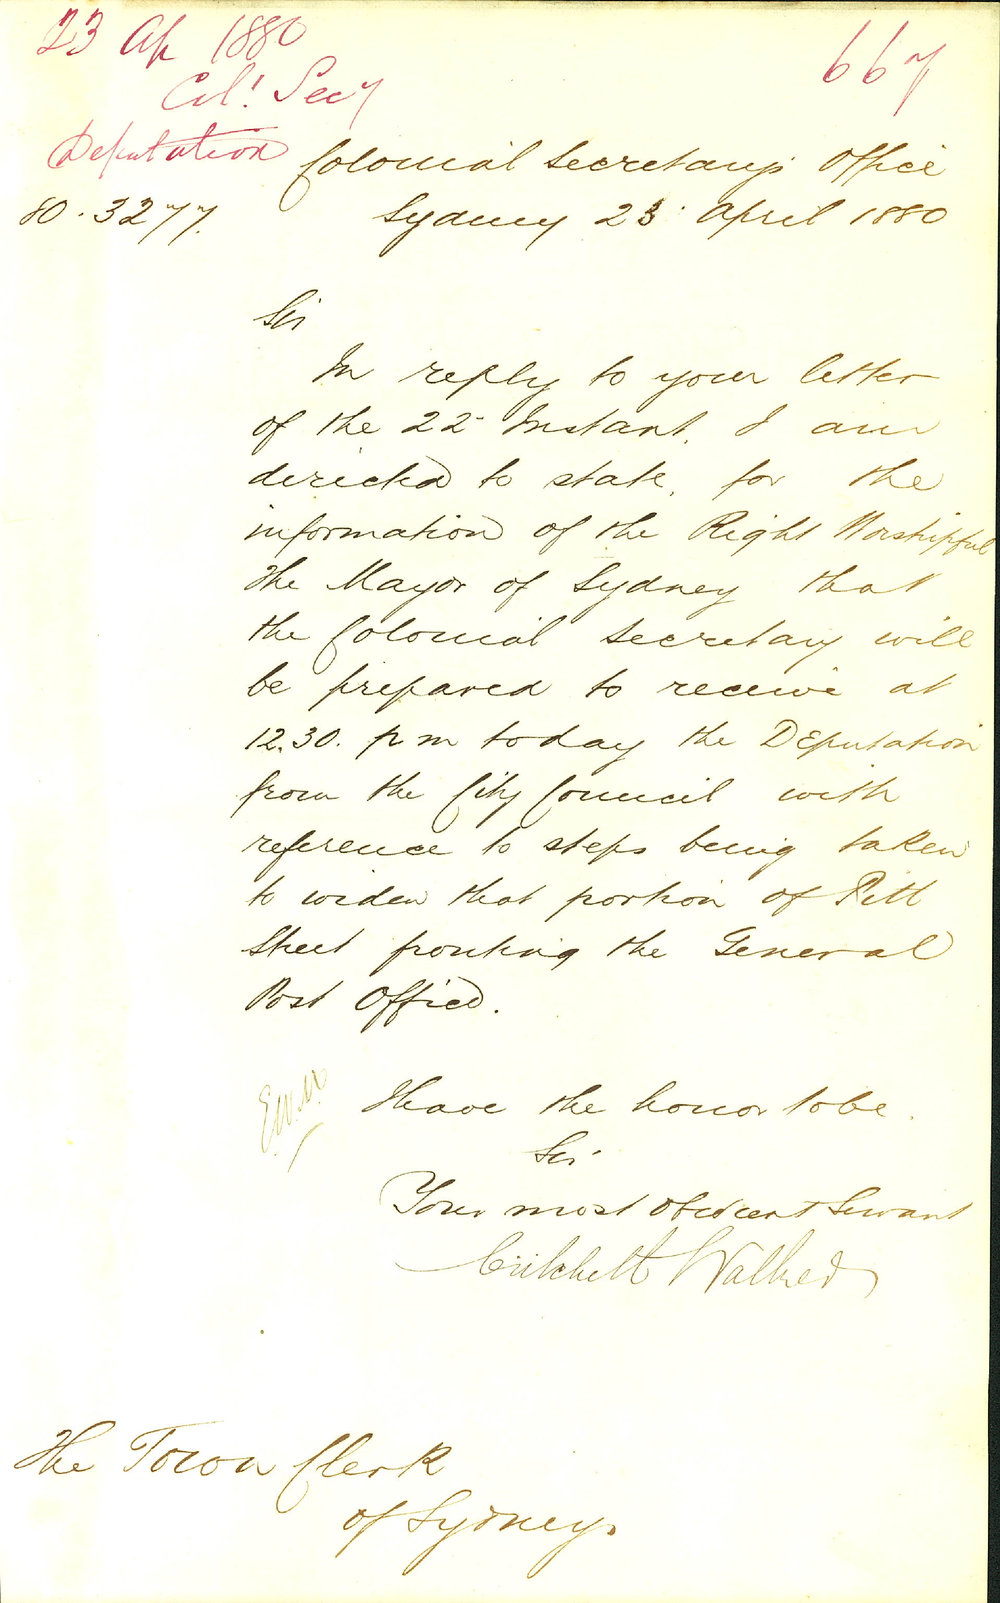 23 Ap 1880
667
Col! Secy
Deputation
Colonial Secretary's Office
80.3277.
Sydney 23 April 1880
Sir
In reply to your letter
of the 22 Instant, I am
directed to state, for the
information of the Right Worshipful
the Mayor of Sydney that
the Colonial Secretary will
be prepared to receive at
12.30. pm today the Deputation
from the City Council with
reference to steps being taken
to widen that portion of Pitt
Street fronting the General
Post Office.
I have the honor to be.
Sir
Your most obedient Servant
Critchett Walker
The Town Clerk
of Sydney.